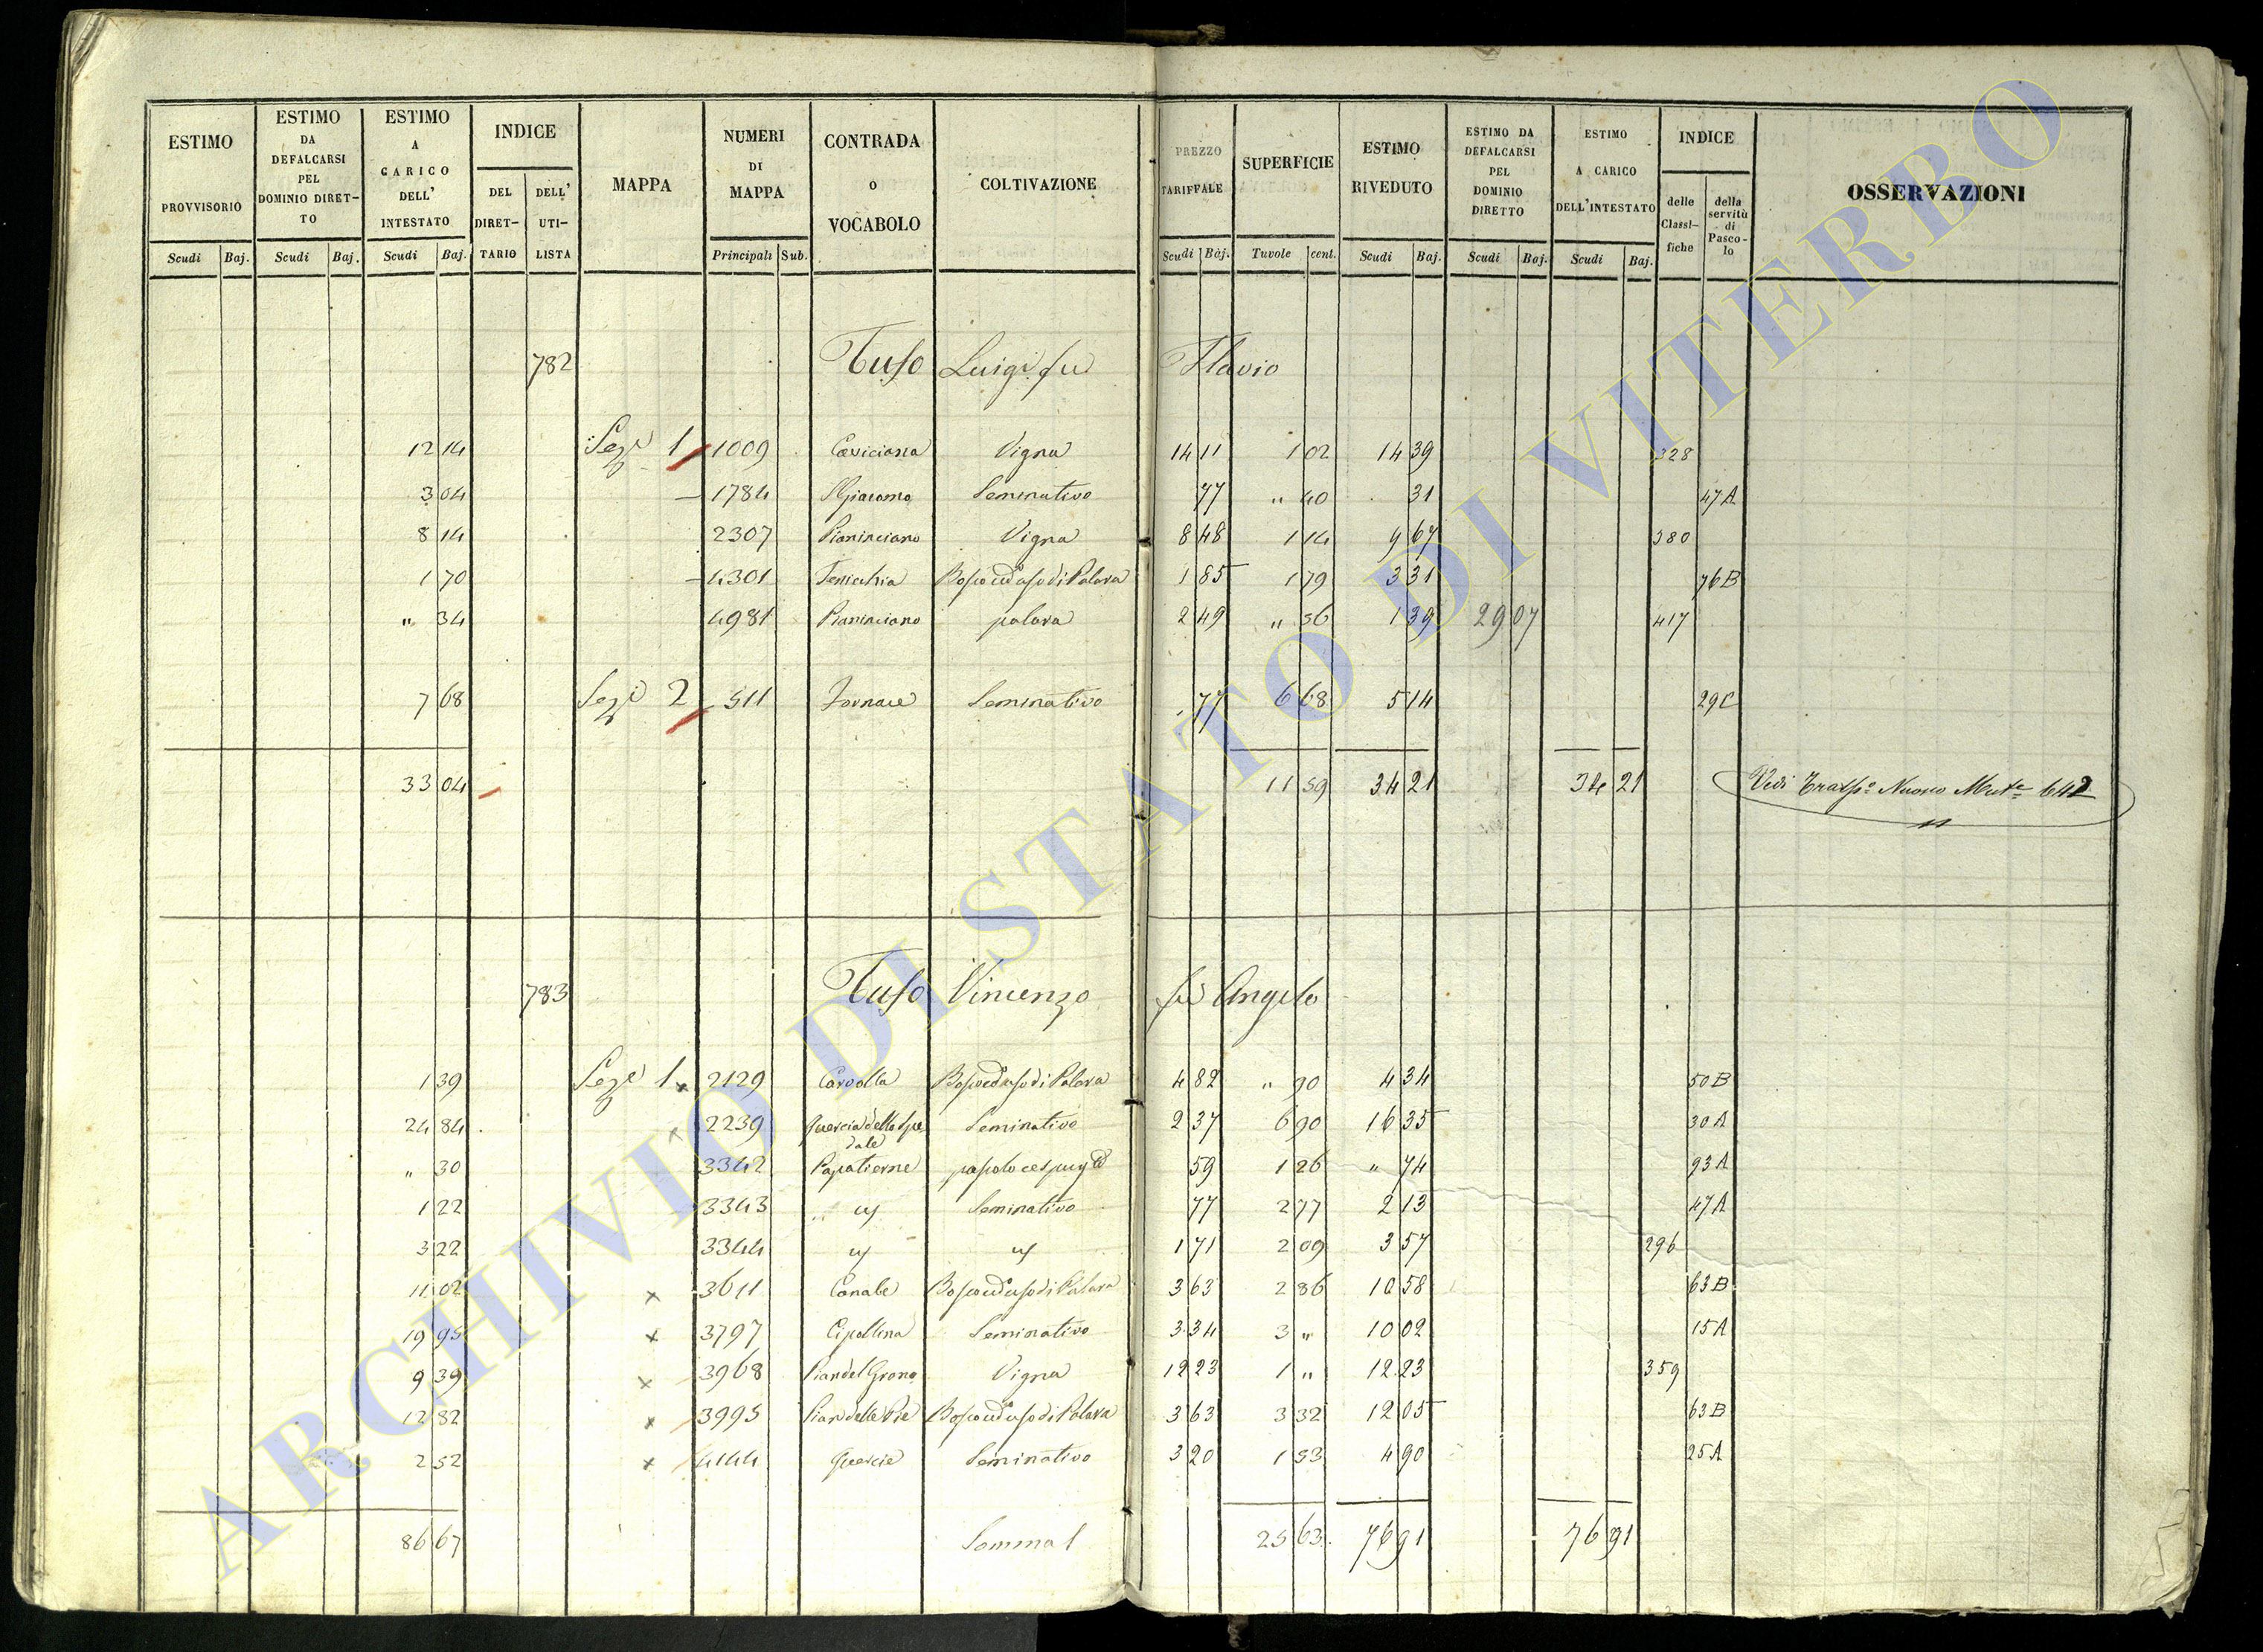 ESTIMO PROVVISORIO Scudi Baj.
ESTIMO DA DEFALCARSI PEL DOMINIO DIRETTO Scudi Baj.
ESTIMO A CARICO DELL' INTESTATO Scudi Baj.
INDICE DEL DIRETTARIO DELL' UTILISTA
MAPPA
NUMERI DI MAPPA Principali Sub.
CONTRADA O VOCABOLO
COLTIVAZIONE
PREZZO TARIFFALE Scudi Baj.
SUPERFICIE Tavole cent.
ESTIMO RIVEDUTO Scudi Baj.
ESTIMO DA DEFALCARSI PEL DOMINIO DIRETTO Scudi Baj.
ESTIMO A CARICO DELL'INTESTATO Scudi Baj.
INDICE delle Classifiche della servitù di Pascolo
OSSERVAZIONI
782 Tufo Luigi fu Flavio
12 14 Sez.e 1 1009 Vigna 14 11 1 02 14 39 328
3 04 1784 S Giacomo Seminativo 77 " 40 31 47A
8 14 2307 Pianinciano Vigna 8 48 1 14 9 67 380
1 70 4301 1 85 1 79 3 31 76B
" 34 4981 Pianinciano palara 2 49 " 56 1 39 29 07 417
7 68 Sez.e 2 511 Fornace Seminativo 77 6 68 5 14 29C
33 04 11 59 34 21 34 21 Vedi Trasp.o Nuovo Mat.e 642
783 Tufo Vincenzo fu Angelo
1 39 Sez.e 1 x 2129 4 82 " 90 4 34 50B
24 84 x 2239 Quercia dello Spe
dale Seminativo 2 37 6 90 16 35 30A
" 30 3342 59 1 26 " 74 93A
1 22 3343 Seminativo 77 2 77 2 13 47A
3 22 3344 1 71 2 09 3 57 296
11 02 x 3611 Canale 3 63 2 86 10 58 63B
19 95 x 3797 Cipollina Seminativo 3 34 3 " 10 02 15A
9 39 x 3968 Pian del Grano Vigna 12 23 1 " 12 23 359
12 82 x 3995 Pian delle Pie 3 63 3 32 12 05 63B
2 52 x 4144 Quercie Seminativo 3 20 1 53 4 90 25A
86 67 Somma l 25 63 76 91 76 91
ARCHIVIO DI STATO DI VITERBO